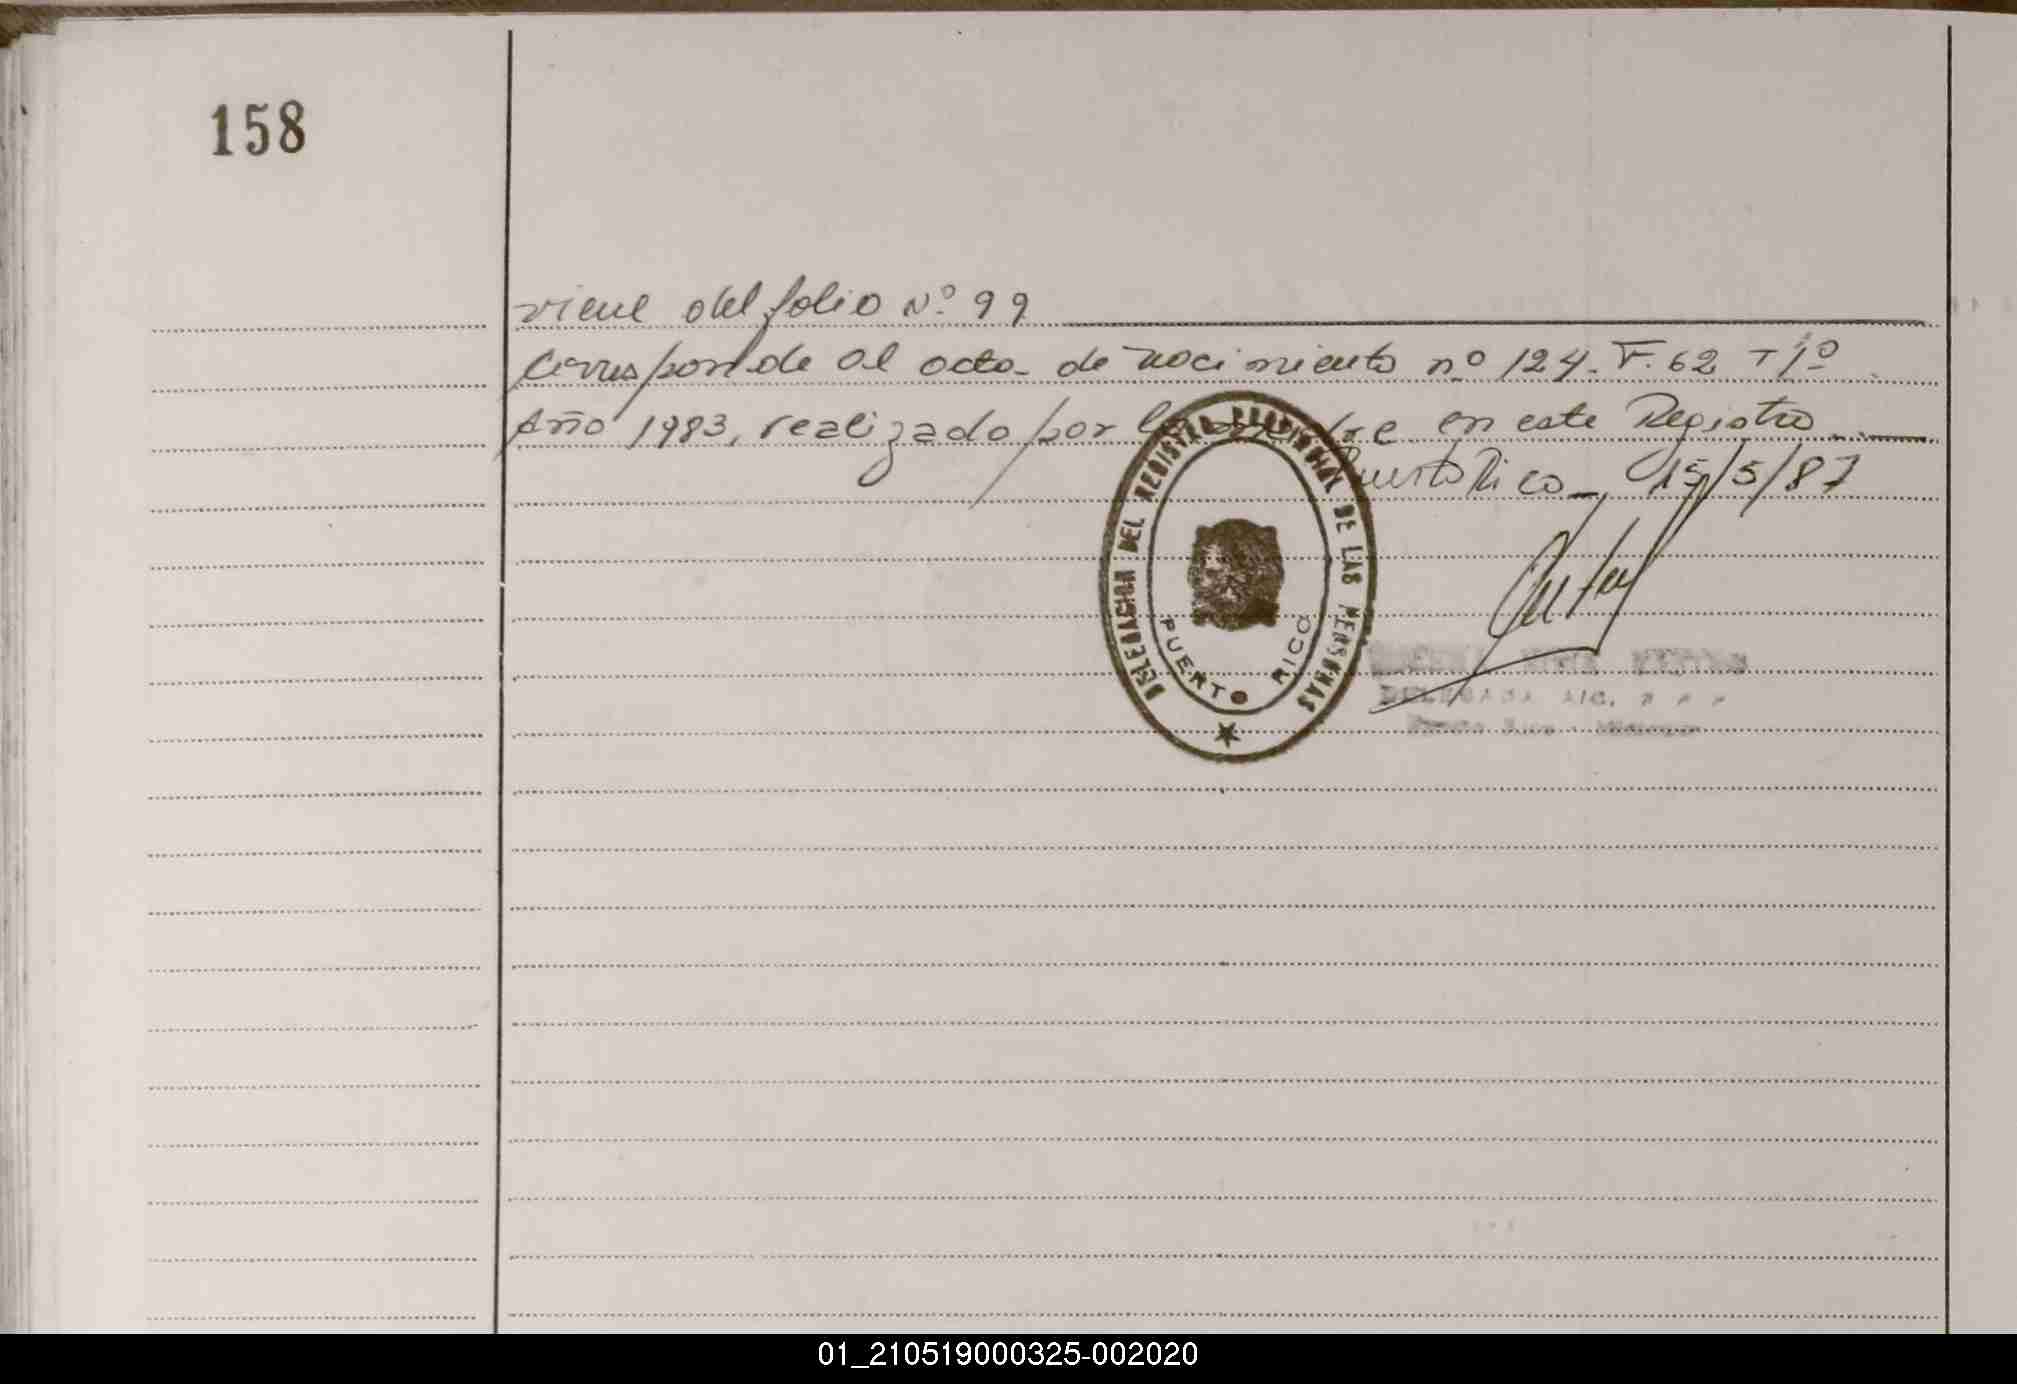 158
viene del folio Nº 99
Corresponde al acta de nacimiento nº 124. F. 62 T 1º
Año 1983, realizado por la madre en este Registro
Puerto Rico, 15/5/87
DELEGACION DEL REGISTRO PROVINCIAL DE LAS PERSONAS
PUERTO RICO
DELEGADA
Puerto Rico - Misiones
01_210519000325-002020